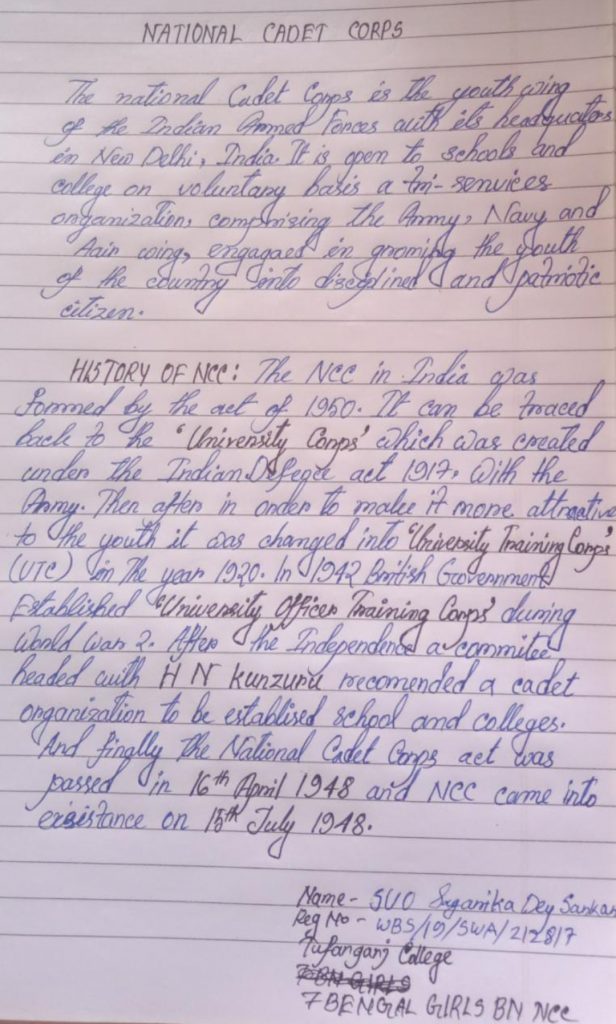 NATIONAL CADET CORPS
The national Cadet Corps is the youth wing
of the Indian Armed Forces with its headquators
in New Delhi, India. It is open to schools and
college on voluntary basis a tri-services
organization, comprising the Army, Navy and
Aair wing, engagaed in groming the youth
of the country into disciplined and patriotic
citizen.
HISTORY OF NCC: The NCC in India was
formed by the act of 1950. It can be traced
back to the 'University Corps' which was created
under the Indian Defence act 1917, with the
Army. Then after in order to make it more attractive
to the youth it was changed into 'University Training Corps'
(UTC) in the year 1920. In 1942 British Government
Established 'University Officer Training Corps' during
World war 2. After the Independence a commitee
headed with H N Kunzuru recomended a cadet
organization to be establised school and colleges.
And finally the National Cadet Corps act was
passed in 16th April 1948 and NCC came into
exsistance on 15th July 1948.
Name - SUO Dey Sarkar
Reg No - WBS/19/SWA/212817
Tufanganj College
7 BN GIRLS
7 BENGAL GIRLS BN NCC